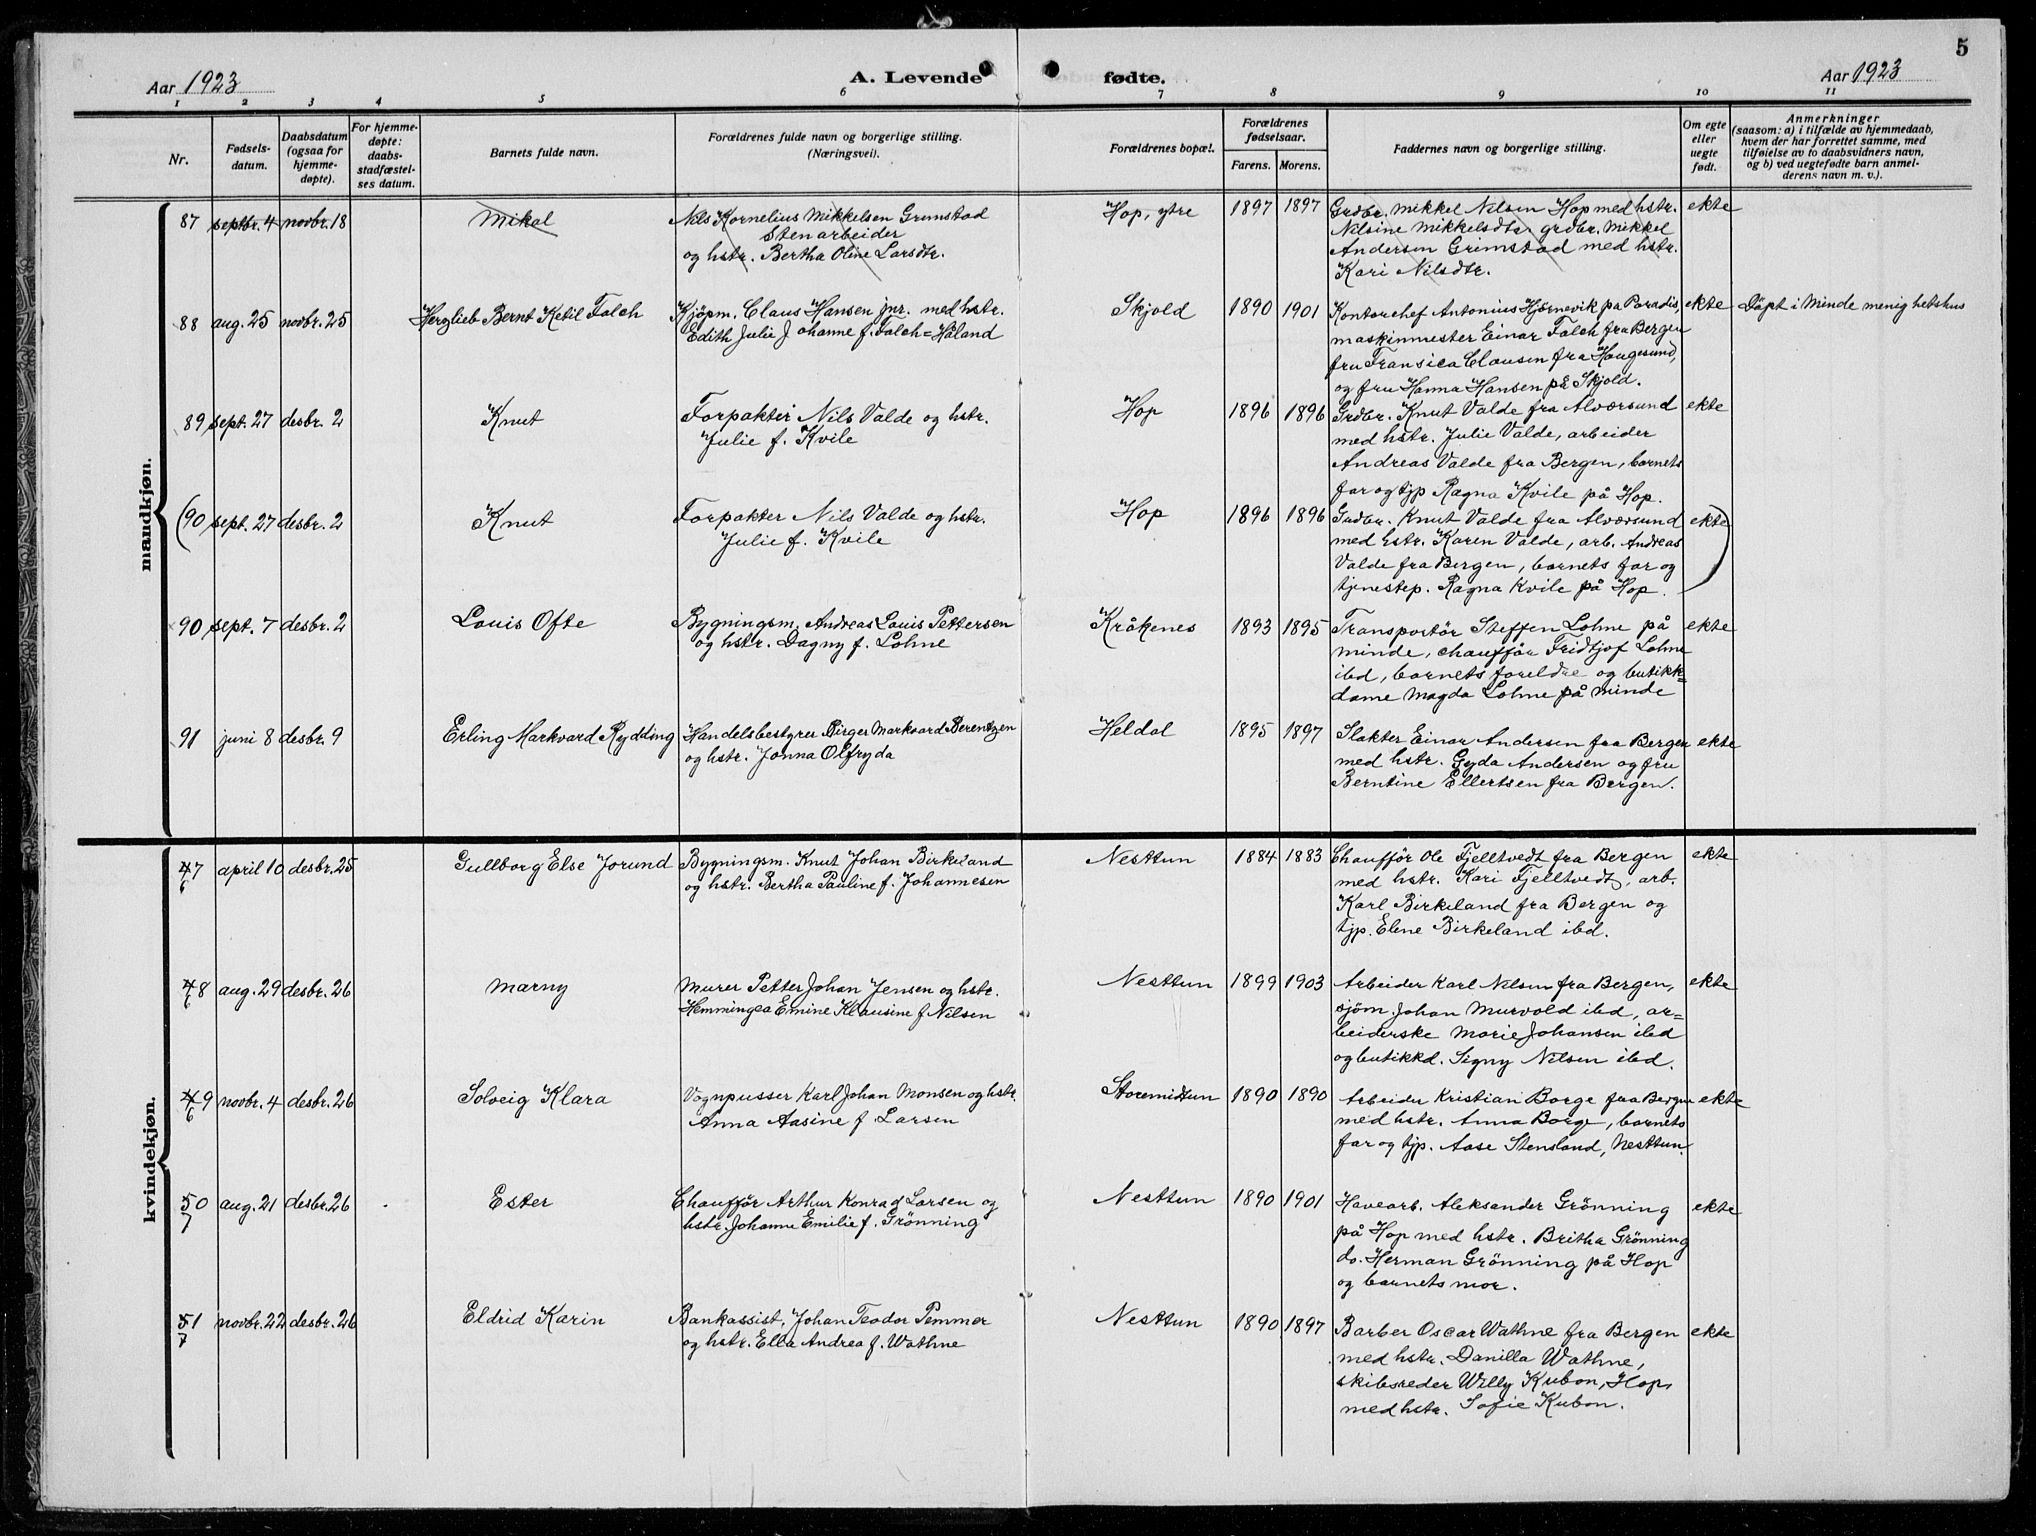 5
Aar 1923
A. Levende fødte.
Aar 1923
1 2 3 4 5 6 7 8 9 10 11
Nr.
Fødsels-
datum.
Daabsdatum
(ogsaa for
hjemme-
døpte).
For hjemme-
døpte:
daabs-
stadfæstel-
ses datum.
Barnets fulde navn.
Forældrenes fulde navn og borgerlige stilling.
(Næringsvei).
Forældrenes bopæl.
Forældrenes
fødselsaar.
Farens. Morens.
Faddernes navn og borgerlige stilling.
Om egte
eller
uegte
født.
Anmerkninger
(saasom: a) i tilfælde av hjemmedaab,
hvem der har forrettet samme, med
tilføielse av to daabsvidners navn,
og b) ved uegtefødte barn anmel-
derens navn m. v.).
mandkjøn.
87 septbr. 4 novbr. 18
Mikal
Nils Kornelius Mikkelsen Grimstad
Stenarbeider
og hstr. Bertha Oline Larsdtr.
Hop, ytre
1897 1897
Grdbr. Mikkel Nilsen Hop med hstr.
Nilsine Mikkelsdtr. grdbr. Mikkel
Andersen Grimstad med hstr.
Kari Nilsdtr.
ekte
88 aug. 25 novbr. 25
Herzlieb Bernt Ketil Falch
Kjöpm. Claus Hansen jnr. med hstr.
Edith Julie Johanne f. Falch=Håland
Skjold
1890 1901
Kontorchef Antonius Hjörnevik på Paradis,
maskinmester Einar Falch fra Bergen
fru Fransica Clausen fra Haugesund,
og fru Hanna Hansen på Skjold.
ekte
Döpt i Minde menighetshus
89 sept. 27 desbr. 2
Knut
Forpakter Nils Valde og hstr.
Julie f. Kvile
Hop
1896 1896
Grdbr. Knut Valde fra Alværsund
med hstr. Julie Valde, arbeider
Andreas Valde fra Bergen, barnets
far og tjp Ragna Kvile på Hop.
ekte
(90 sept. 27 desbr. 2
Knut
Forpakter Nils Valde og hstr.
Julie f. Kvile
Hop
1896 1896
Grdbr. Knut Valde fra Alværsund
med hstr. Karen Valde, arb. Andreas
Valde fra Bergen, barnets far og
tjenestep. Ragna Kvile på Hop.
ekte)
90 sept. 7 desbr. 2
Louis Ofte
Bygningsm. Andreas Louis Pettersen
og hstr. Dagny f. Lohne
Kråkenes
1893 1895
Transportör Steffen Lohne på
minde, chaufför Fridtjof Lohne
ibd, barnets foreldre og butikk=
dame Magda Lohne på minde
ekte
91 juni 8 desbr. 9
Erling Markvard Rydding
Handelsbestyrer Birger Markvard Berentzen
og hstr. Jonna Olfryda
Heldal
1895 1897
Slakter Einar Andersen fra Bergen
med hstr. Gyda Andersen og fru
Berntine Ellertsen fra Bergen.
ekte
kvindekjøn.
47 april 10 desbr. 25
6
Gullborg Else Jorund
Bygningsm. Knut Johan Birkeland
og hstr. Bertha Pauline f. Johannesen
Nesttun
1884 1883
Chaufför Ole Fjelltvedt fra Bergen
med hstr. Kari Fjelltvedt, arb.
Karl Birkeland fra Bergen og
tjp. Elene Birkeland ibd.
ekte
48 aug. 29 desbr. 26
6
Marny
Murer Petter Johan Jensen og hstr.
Hemmingea Emine Klausine f Nilsen
Nesttun
1899 1903
Arbeider Karl Nilsen fra Bergen,
sjöm. Johan Murvold ibd, ar=
beiderske Marie Johansen ibd
og butikkd. Signy Nilsen ibd.
ekte
49 novbr. 4 desbr. 26
6
Solveig Klara
Vognpusser Karl Johan Monsen og hstr.
Anna Aasine f Larsen
Storemidtun
1890 1890
Arbeider Kristian Borge fra Bergen
med hstr. Anna Borge, barnets
far og tjp. Aase Stensland, Nesttun.
ekte
50 aug. 21 desbr. 26
7
Ester
Chaufför Arthur Konrad Larsen og
hstr. Johanne Emilie f. Grönning
Nesttun
1890 1901
Havearb. Aleksander Grönning
på Hop med hstr. Britha Grönning
do. Herman Grönning på Hop
og barnets mor.
ekte
51 novbr. 22 desbr. 26
7
Eldrid Karin
Bankassist. Johan Teodor Pemmer
og hstr. Ella Andrea f. Wathne
Nesttun
1890 1897
Barber Oscar Wathne fra Bergen
med hstr. Danilla Wathne,
skibsreder Willy Kubon, Hop,
med hstr. Sofie Kubon.
ekte